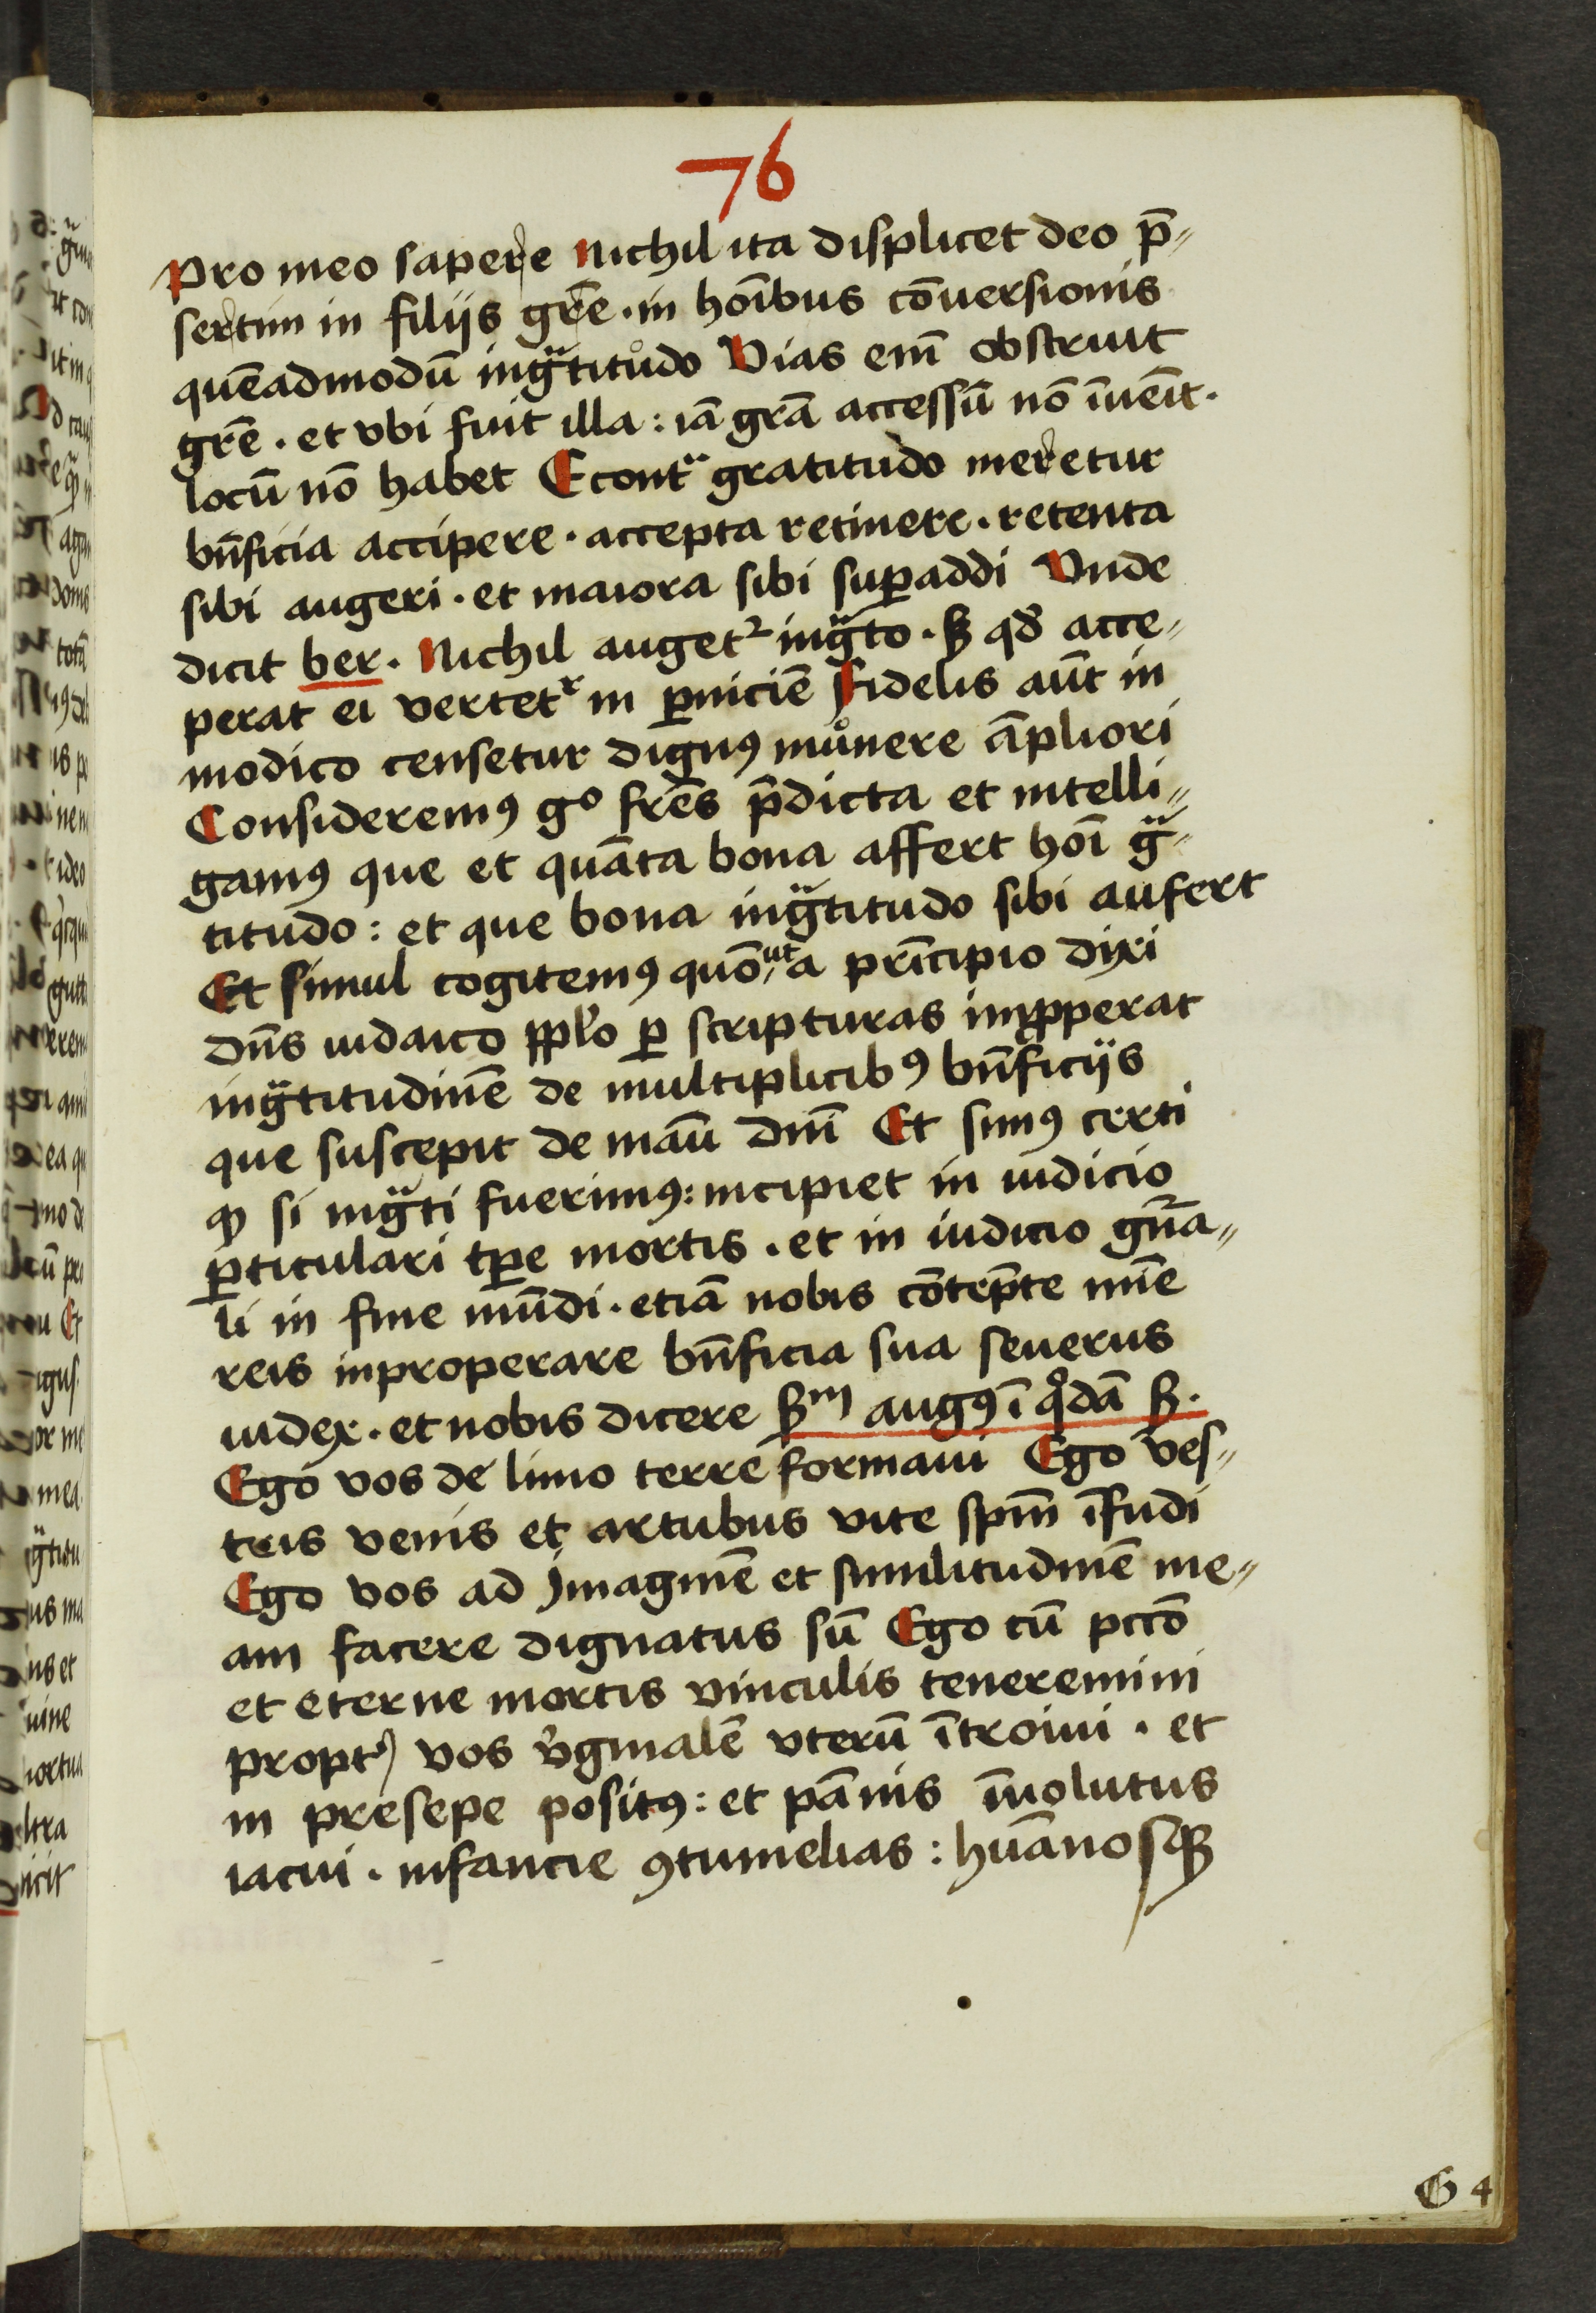 76
Pro meo sapere Nichil ita displicet deo p̄⸗
sertim in filijs gr̄e · in hoībus cōuersionis
quēadmodū ingᵃtitůdo Vias em̄ obstruit
gr̄e · et vbi fuit illa : iā grā accessū nō īueīt ·
locū nō habet Econtᵃ gratitudo meretur
bn̄ficia accipere · accepta retinere · retenta
sibi augeri · et maiora sibi suꝑaddi Vnde
dicit ber. Nichil augetᷣ ingᵃto · ꝫ qd̄ acce⸗
perat ei vertetᷣ in ꝑniciē Fidelis aūt in
modico censetur dignꝰ můnere āpliori
Consideremꝰ gͦ fr̄es p̄dicta et intelli⸗
gamꝰ que et quāta bona affert hoī gᵃ⸗
titudo : et que bona ingᵃtitudo sibi aufert
Et simul cogitemꝰ quō ut a prīcipio dixi
dn̄s iudaico pplo ꝑ scripturas imꝓperat
ingᵃtitudinē de multiplicibꝰ bn̄ficijs
que suscepit de manū dn̄i Et simꝰ certi
ꝙ si ingᵃti fuerimꝰ : incipiet in iudicio
ꝑticulari tp̄e mortis · et in iudicio gn̄a⸗
li in fine mūdi · etiā nobis cōtēpte mīe
reis inproperare bn̄ficia sua seuerus
iudex · et nobis dicere ẜm augꝰ ī qͦdā ẜ.
Ego vos de limo terre formaui Ego ves⸗
tris venis et artubus vite spm̄ īfudi
Ego vos ad Imaginē et similitudinē me⸗
am facere dignatus sū Ego cū pccō
et eterne mortis vinculis teneremini
propt̉ vos v̉ginalē vterū ītroiui · et
in presepe positꝰ : et pānis īuolutus
iacui · infancie ꝯtumelias : huānosqꝫ
G 4